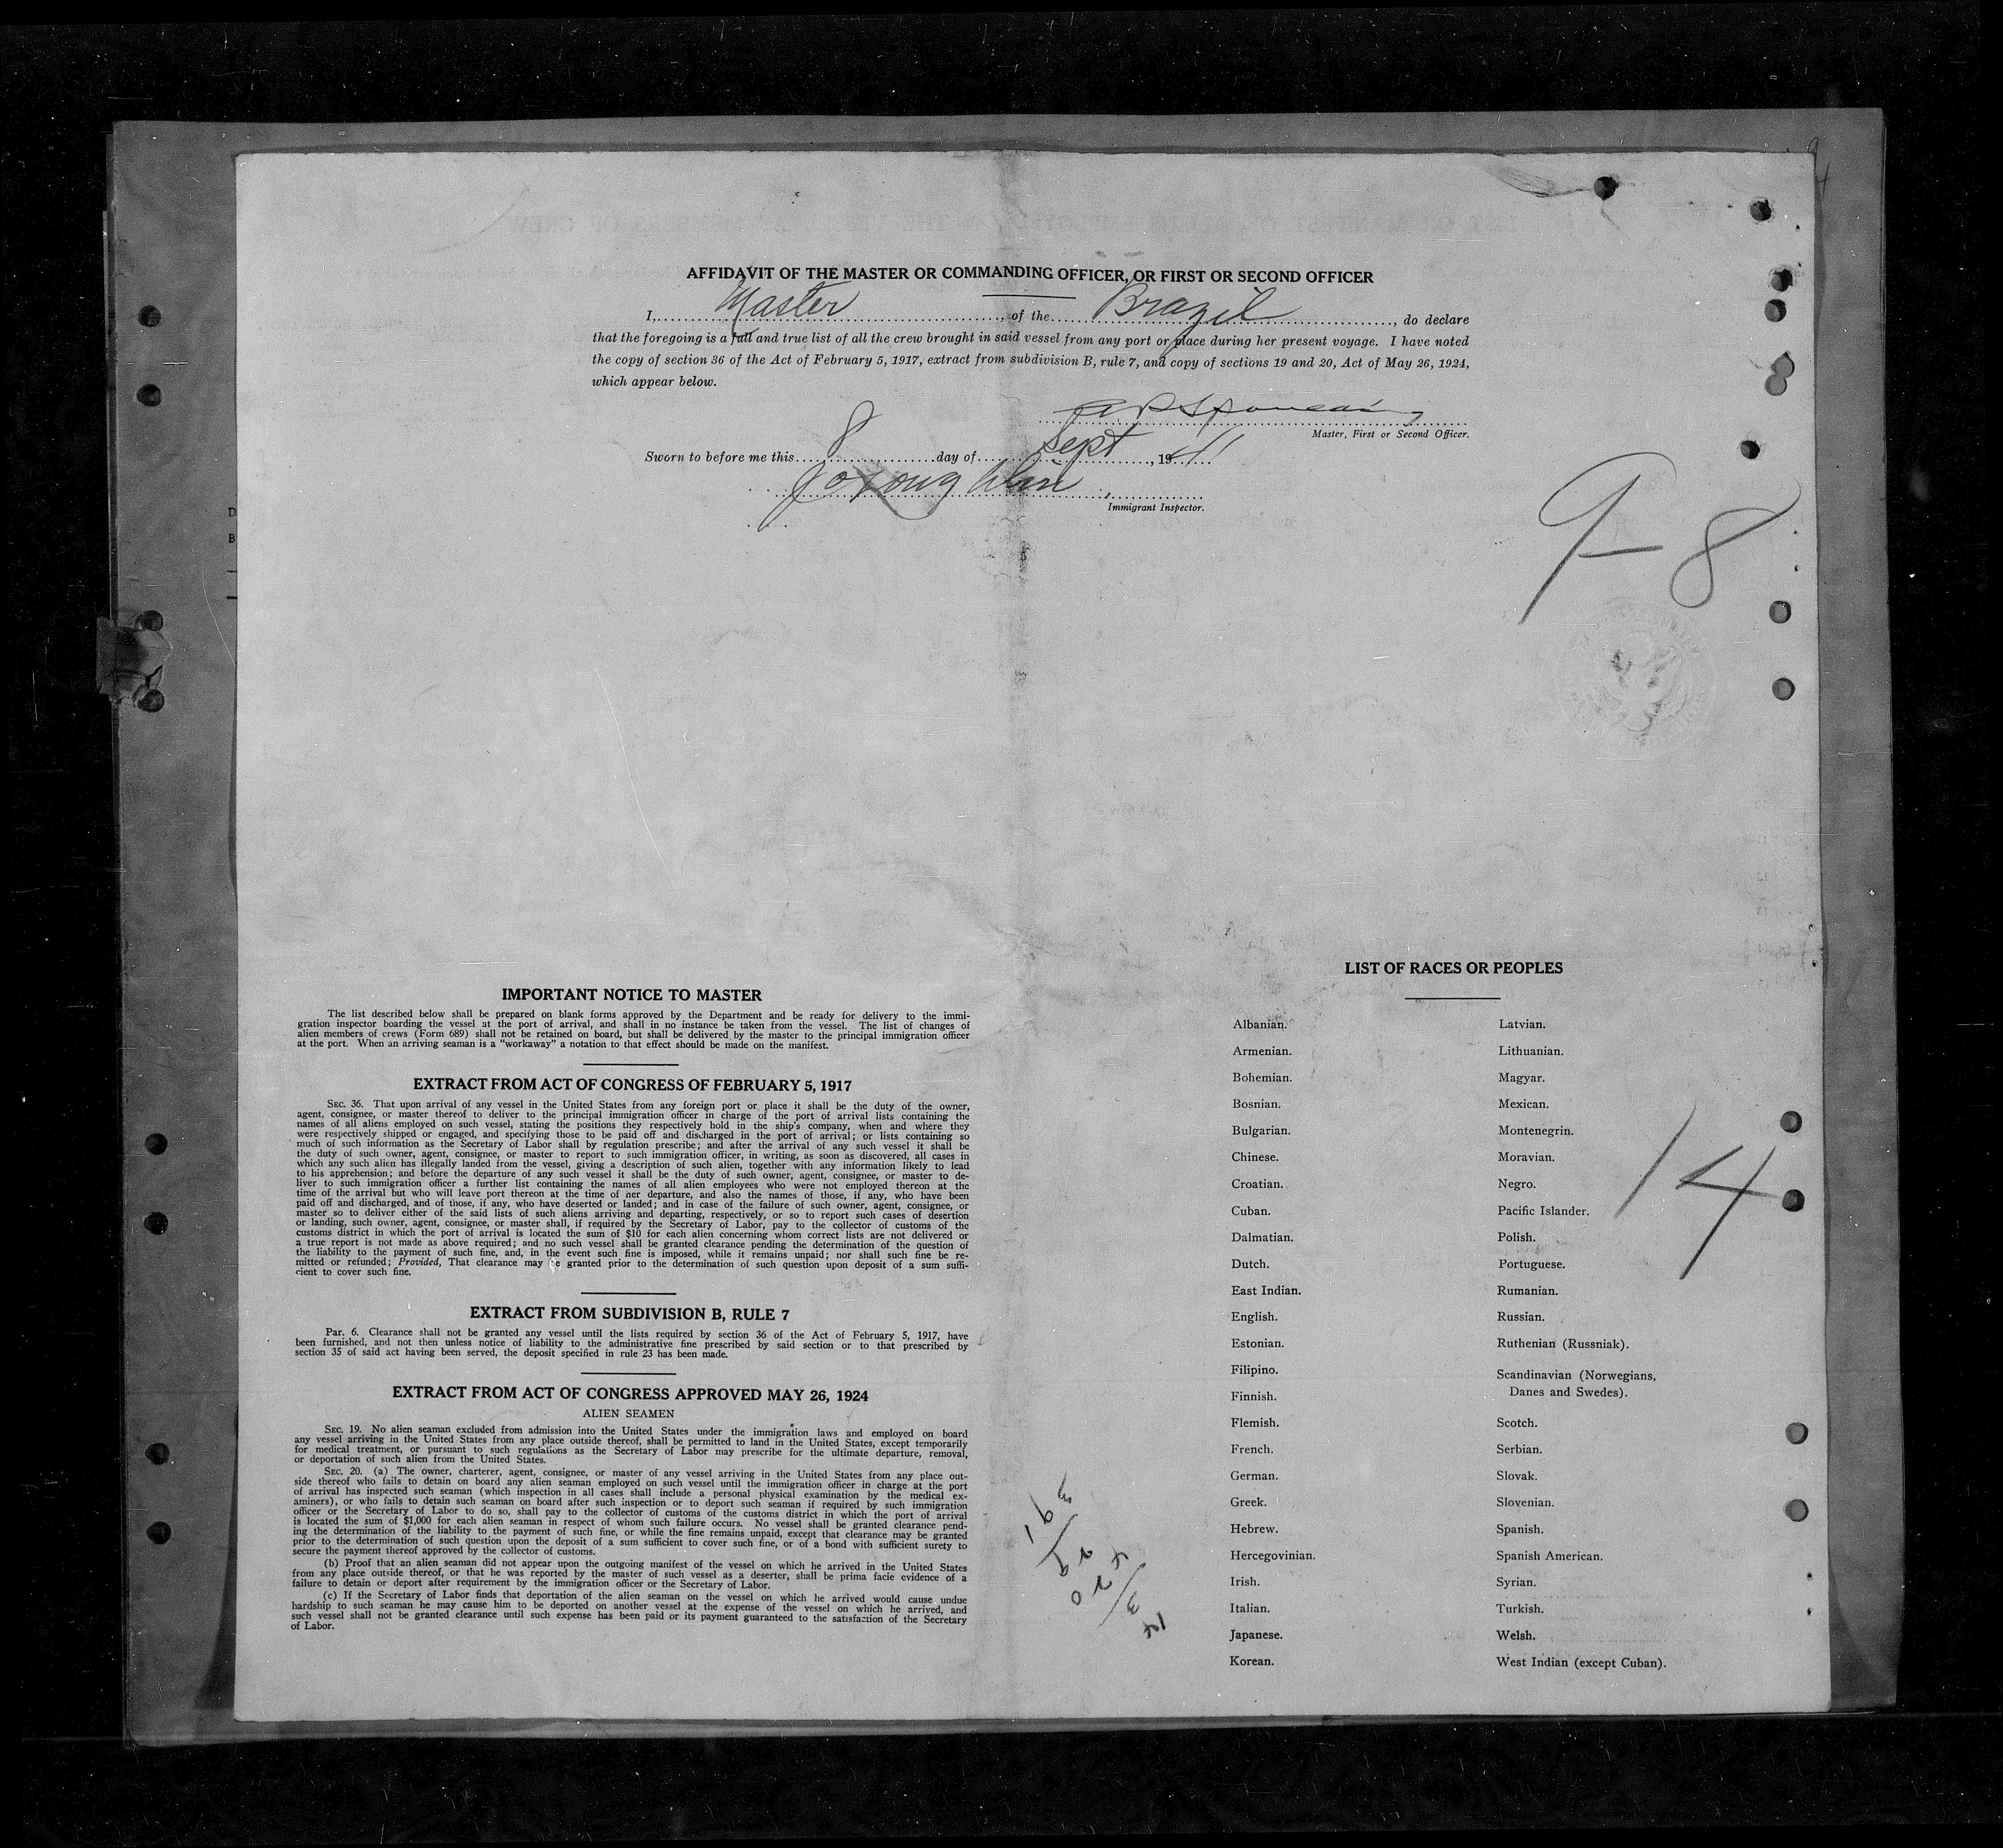 AFFIDAVIT OF THE MASTER OR COMMANDING OFFICER, OR FIRST OR SECOND OFFICER
I, Master, of the Brazil, do declare
that the foregoing is a full and true list of all the crew brought in said vessel from any port or place during her present voyage. I have noted
the copy of section 36 of the Act of February 5, 1917, extract from subdivision B, rule 7, and copy of sections 19 and 20, Act of May 26, 1924,
which appear below.
Master, First or Second Officer.
Sworn to before me this 8 day of Sept, 1941
Immigrant Inspector.
9-8
IMPORTANT NOTICE TO MASTER
The list described below shall be prepared on blank forms approved by the Department and be ready for delivery to the immi-
gration inspector boarding the vessel at the port of arrival, and shall in no instance be taken from the vessel. The list of changes of
alien members of crews (Form 689) shall not be retained on board, but shall be delivered by the master to the principal immigration officer
at the port. When an arriving seaman is a "workaway" a notation to that effect should be made on the manifest.
EXTRACT FROM ACT OF CONGRESS OF FEBRUARY 5, 1917
SEC. 36. That upon arrival of any vessel in the United States from any foreign port or place it shall be the duty of the owner,
agent, consignee, or master thereof to deliver to the principal immigration officer in charge of the port of arrival lists containing the
names of all aliens employed on such vessel, stating the positions they respectively hold in the ship's company, when and where they
were respectively shipped or engaged, and specifying those to be paid off and discharged in the port of arrival; or lists containing so
much of such information as the Secretary of Labor shall by regulation prescribe; and after the arrival of any such vessel it shall be
the duty of such owner, agent, consignee, or master to report to such immigration officer, in writing, as soon as discovered, all cases in
which any such alien has illegally landed from the vessel, giving a description of such alien, together with any information likely to lead
to his apprehension; and before the departure of any such vessel it shall be the duty of such owner, agent, consignee, or master to de-
liver to such immigration officer a further list containing the names of all alien employees who were not employed thereon at the
time of the arrival but who will leave port thereon at the time of her departure, and also the names of those, if any, who have been
paid off and discharged, and of those, if any, who have deserted or landed; and in case of the failure of such owner, agent, consignee, or
master so to deliver either of the said lists of such aliens arriving and departing, respectively, or so to report such cases of desertion
or landing, such owner, agent, consignee, or master shall, if required by the Secretary of Labor, pay to the collector of customs of the
customs district in which the port of arrival is located the sum of $10 for each alien concerning whom correct lists are not delivered or
a true report is not made as above required; and no such vessel shall be granted clearance pending the determination of the question of
the liability to the payment of such fine, and, in the event such fine is imposed, while it remains unpaid; nor shall such fine be re-
mitted or refunded; Provided, That clearance may be granted prior to the determination of such question upon deposit of a sum suffi-
cient to cover such fine.
EXTRACT FROM SUBDIVISION B, RULE 7
Par. 6. Clearance shall not be granted any vessel until the lists required by section 36 of the Act of February 5, 1917, have
been furnished, and not then unless notice of liability to the administrative fine prescribed by said section or to that prescribed by
section 35 of said act having been served, the deposit specified in rule 23 has been made.
EXTRACT FROM ACT OF CONGRESS APPROVED MAY 26, 1924
ALIEN SEAMEN
SEC. 19. No alien seaman excluded from admission into the United States under the immigration laws and employed on board
any vessel arriving in the United States from any place outside thereof, shall be permitted to land in the United States, except temporarily
for medical treatment, or pursuant to such regulations as the Secretary of Labor may prescribe for the ultimate departure, removal,
or deportation of such alien from the United States.
SEC. 20. (a) The owner, charterer, agent, consignee, or master of any vessel arriving in the United States from any place out-
side thereof who fails to detain on board any alien seaman employed on such vessel until the immigration officer in charge at the port
of arrival has inspected such seaman (which inspection in all cases shall include a personal physical examination by the medical ex-
aminers), or who fails to detain such seaman on board after such inspection or to deport such seaman if required by such immigration
officer or the Secretary of Labor to do so, shall pay to the collector of customs of the customs district in which the port of arrival
is located the sum of $1,000 for each alien seaman in respect of whom such failure occurs. No vessel shall be granted clearance pend-
ing the determination of the liability to the payment of such fine, or while the fine remains unpaid, except that clearance may be granted
prior to the determination of such question upon the deposit of a sum sufficient to cover such fine, or of a bond with sufficient surety to
secure the payment thereof approved by the collector of customs.
(b) Proof that an alien seaman did not appear upon the outgoing manifest of the vessel on which he arrived in the United States
from any place outside thereof, or that he was reported by the master of such vessel as a deserter, shall be prima facie evidence of a
failure to detain or deport after requirement by the immigration officer or the Secretary of Labor.
(c) If the Secretary of Labor finds that deportation of the alien seaman on the vessel on which he arrived would cause undue
hardship to such seaman he may cause him to be deported on another vessel at the expense of the vessel on which he arrived, and
such vessel shall not be granted clearance until such expense has been paid or its payment guaranteed to the satisfaction of the Secretary
of Labor.
LIST OF RACES OR PEOPLES
Albanian.
Armenian.
Bohemian.
Bosnian.
Bulgarian.
Chinese.
Croatian.
Cuban.
Dalmatian.
Dutch.
East Indian.
English.
Estonian.
Filipino.
Finnish.
Flemish.
French.
German.
Greek.
Hebrew.
Hercegovinian.
Irish.
Italian.
Japanese.
Korean.
Latvian.
Lithuanian.
Magyar.
Mexican.
Montenegrin.
Moravian.
Negro.
Pacific Islander.
Polish.
Portuguese.
Rumanian.
Russian.
Ruthenian (Russniak).
Scandinavian (Norwegians,
Danes and Swedes).
Scotch.
Serbian.
Slovak.
Slovenian.
Spanish.
Spanish American.
Syrian.
Turkish.
Welsh.
West Indian (except Cuban).
14